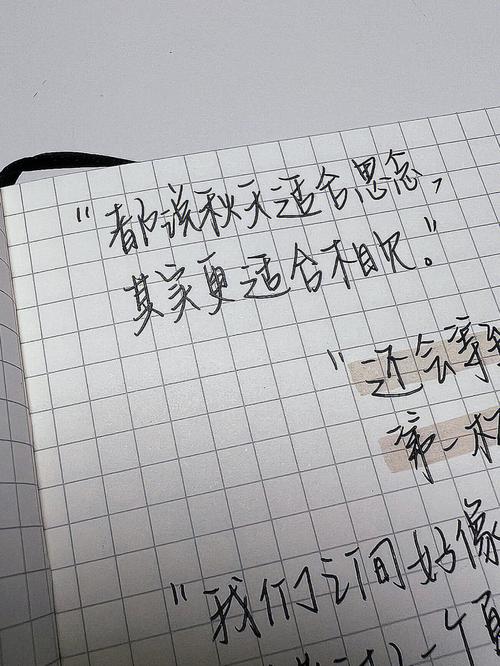 "都说秋天适合思念,
其实更适合相见。"
"还会等到
第一杯
"我们之间好像